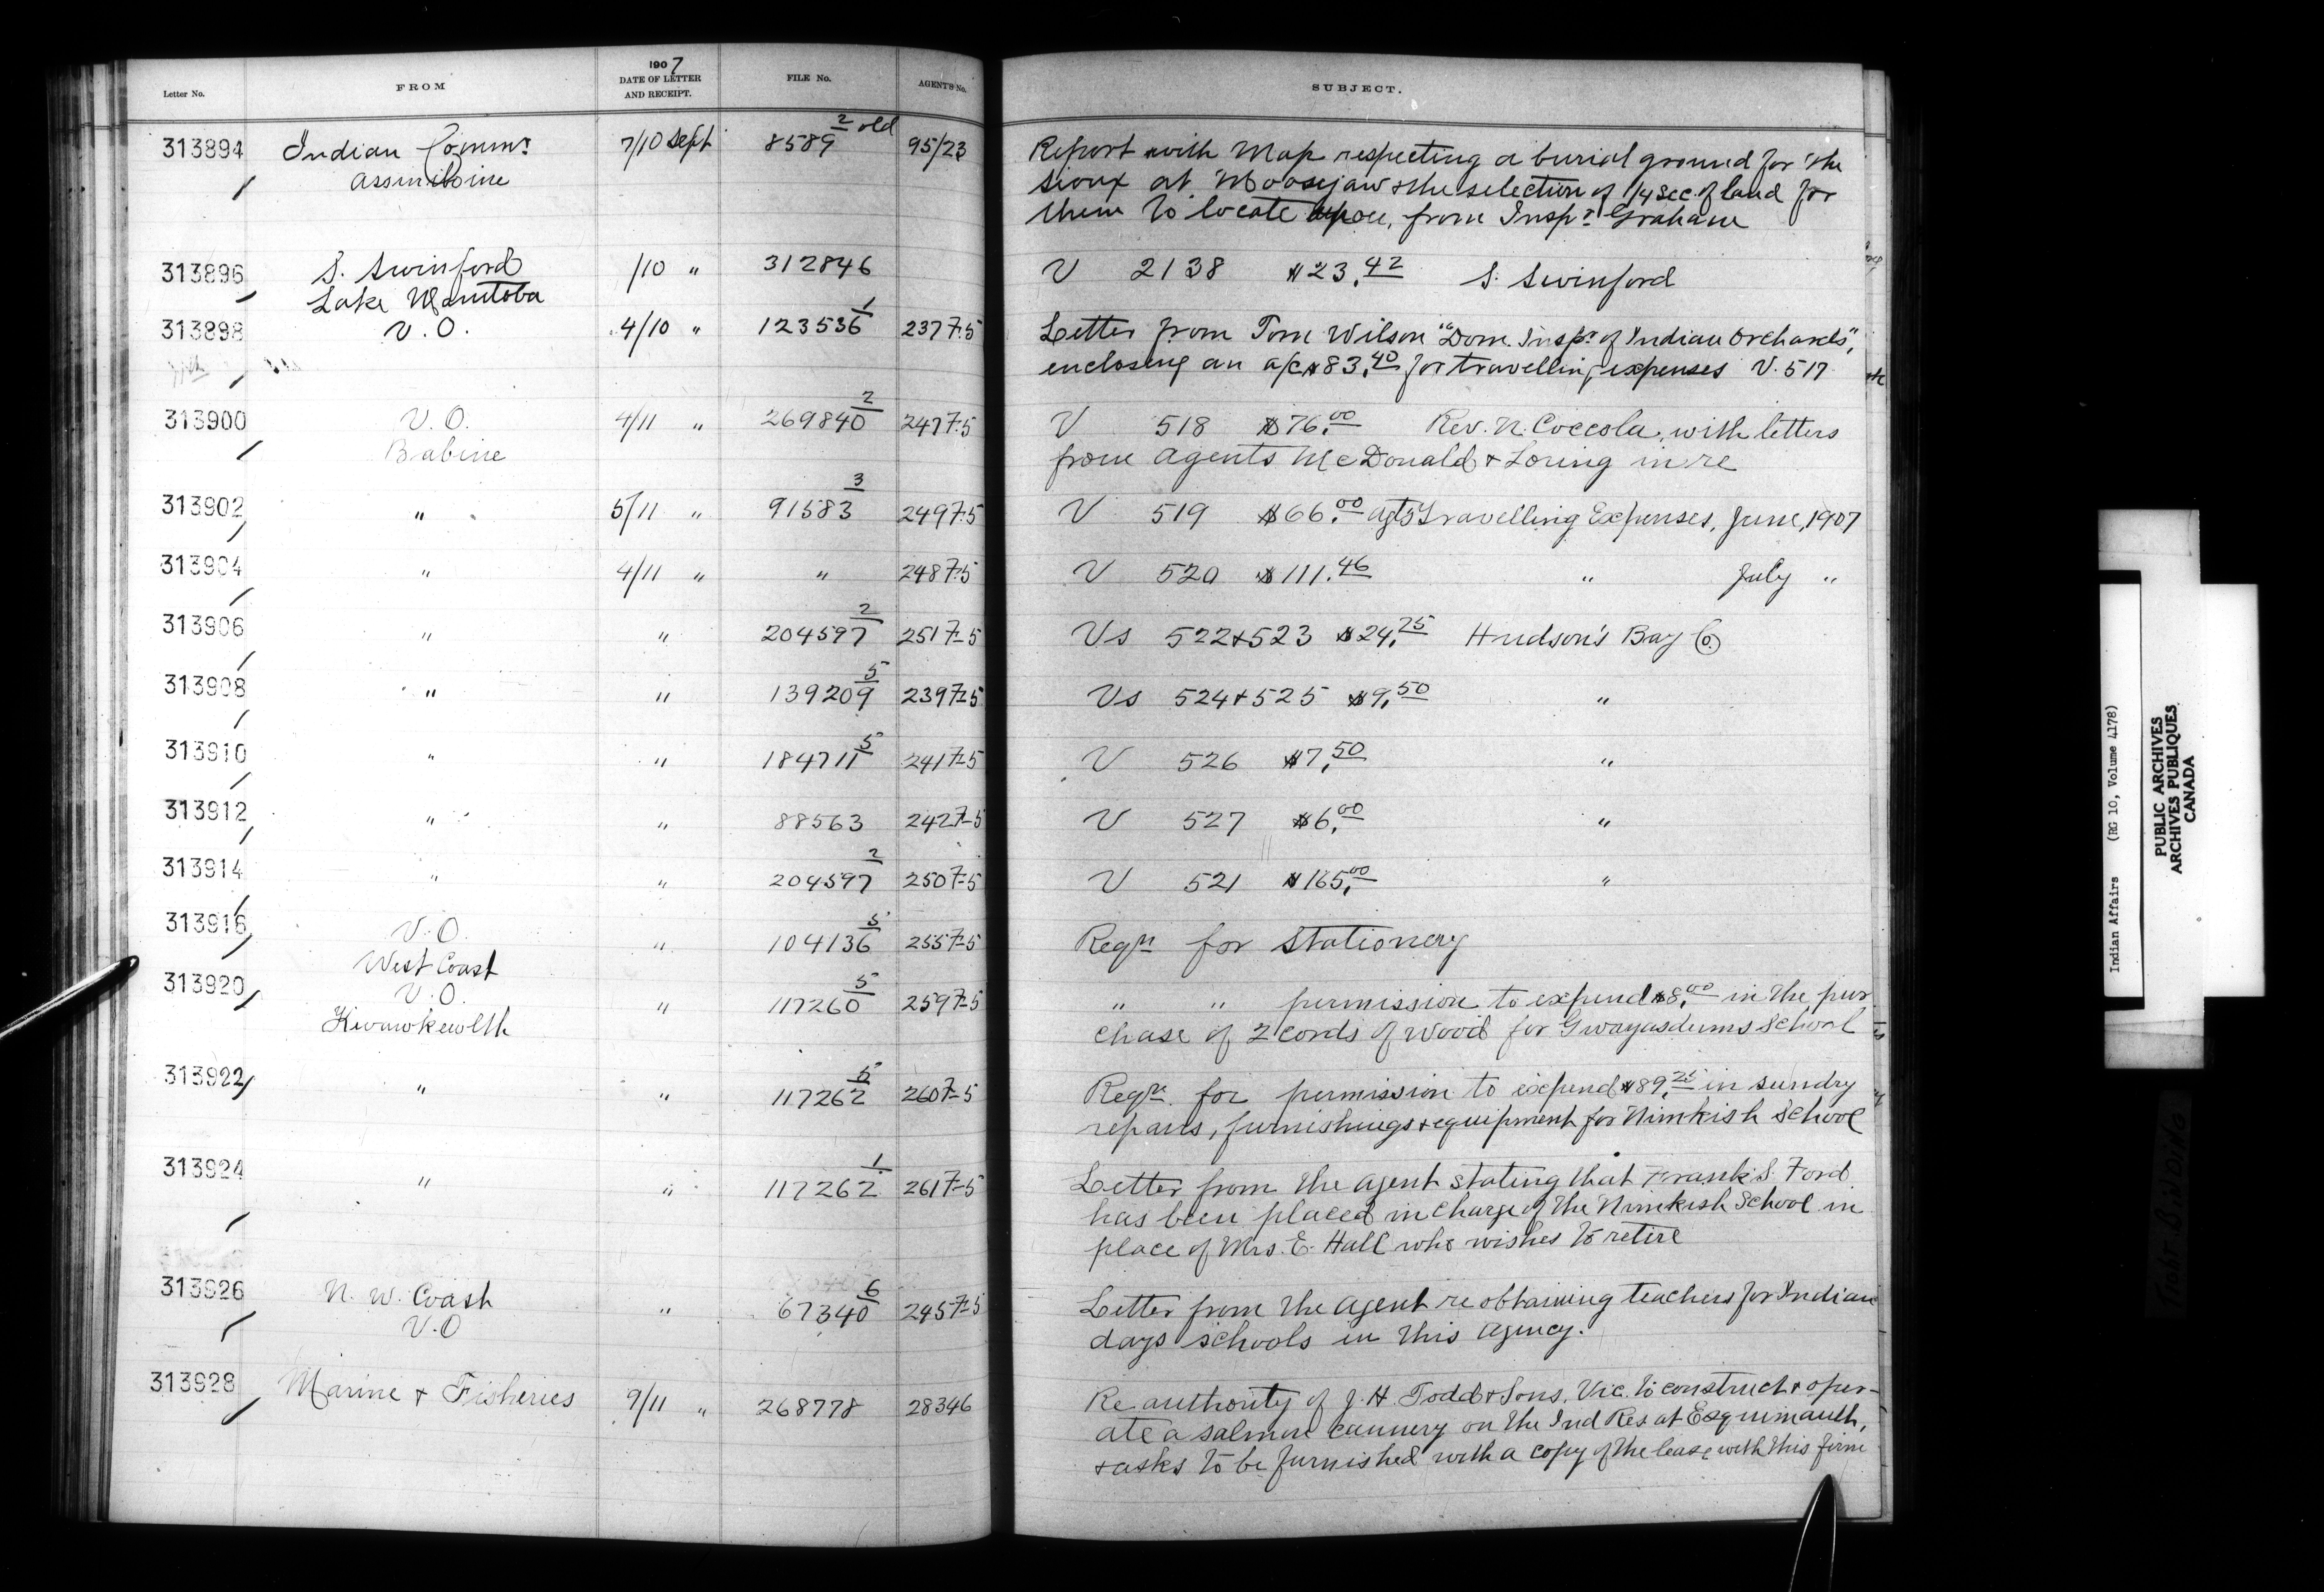 Letter No.
FROM
1907
DATE OF LETTER
AND RECEIPT.
FILE No.
AGENT'S No.
SUBJECT.
313894 Indian Commr 7/10 Sept 8589 2 old 95/23 Report with Map respecting a burial ground for the
Assiniboine Sioux at Moosejaw & the selection of 1/4 sec. of land for
them to locate upon, from Inspr Graham
313896 S. Swinford /10 " 312846 V 2138 $23.42 S. Swinford
Lake Manitoba
313898 V.O. 4/10 " 123536 1 2377-5 Letter from Tom Wilson "Dom. Inspr of Indian Orchards",
enclosing an a/c $83.40 for travelling expenses V. 517
313900 V.O. 4/11 " 269840 2 2477-5 V 518 $76.00 Rev. N. Coccola, with letters
Babine from Agents McDonald & Loring in re
313902 " 5/11 " 91583 3 2497-5 V 519 $66.00 Agt's Travelling Expenses, June, 1907
313904 " 4/11 " " 2487-5 V 520 $111.46 " July "
313906 " " 204597 2 2517-5 Vs 522 & 523 $24.25 Hudson's Bay Co.
313908 " " 139209 5 2397-5 Vs 524 & 525 $9.50 "
313910 " " 184711 5 2417-5 V 526 $7.50 "
313912 " " 88563 2427-5 V 527 $6.00 "
313914 " " 204597 2 2507-5 V 521 $165.00 "
313916 V.O. " 104136 5 2557-5 Reqn for Stationery
West Coast
313920 V.O. " 117260 5 2597-5 " " permission to expend $8.00 in the pur
Kwawkewlth chase of 2 cords of wood for Gwayasdums School
313922 " " 117262 5 2607-5 Reqn for permission to expend $89.25 in sundry
repairs, furnishings & equipment for Nimkish School
313924 " " 117262 1 2617-5 Letter from the Agent stating that Frank S. Ford
has been placed in charge of the Nimkish School in
place of Mrs. E. Hall who wishes to retire
313926 N. W. Coast " 67340 6 2457-5 Letter from the Agent re obtaining teachers for Indian
V.O days schools in this Agency.
313928 Marine & Fisheries 9/11 " 268778 28346 Re authority of J. H. Todd & Sons, Vic. to construct & oper-
ate a salmon cannery on the Ind Res at Esquimault,
& asks to be furnished with a copy of the lease with this firm
Indian Affairs (RG 10, Volume 4178)
PUBLIC ARCHIVES
ARCHIVES PUBLIQUES
CANADA